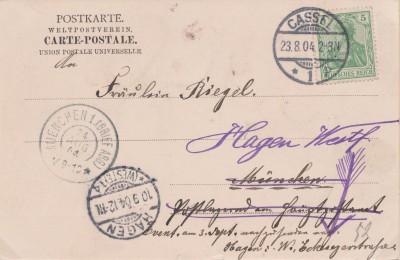 POSTKARTE.
WELTPOSTVEREIN.
CARTE-POSTALE.
UNION POSTALE UNIVERSELLE
An
CASSEL
23.8.04. 2-3N
* 1
5
DEUTSCHES REICH
Fräulein Riegel.
MUENCHEN 1. (BRIEF AUSG)
24
04
Hagen Westf
München.
HAGEN (WESTF) 1
10.9.04. 12-1N
Postlagernd am Hauptpostamt
Event. am 3. Sept. nachzusenden nach
Hagen i. W.